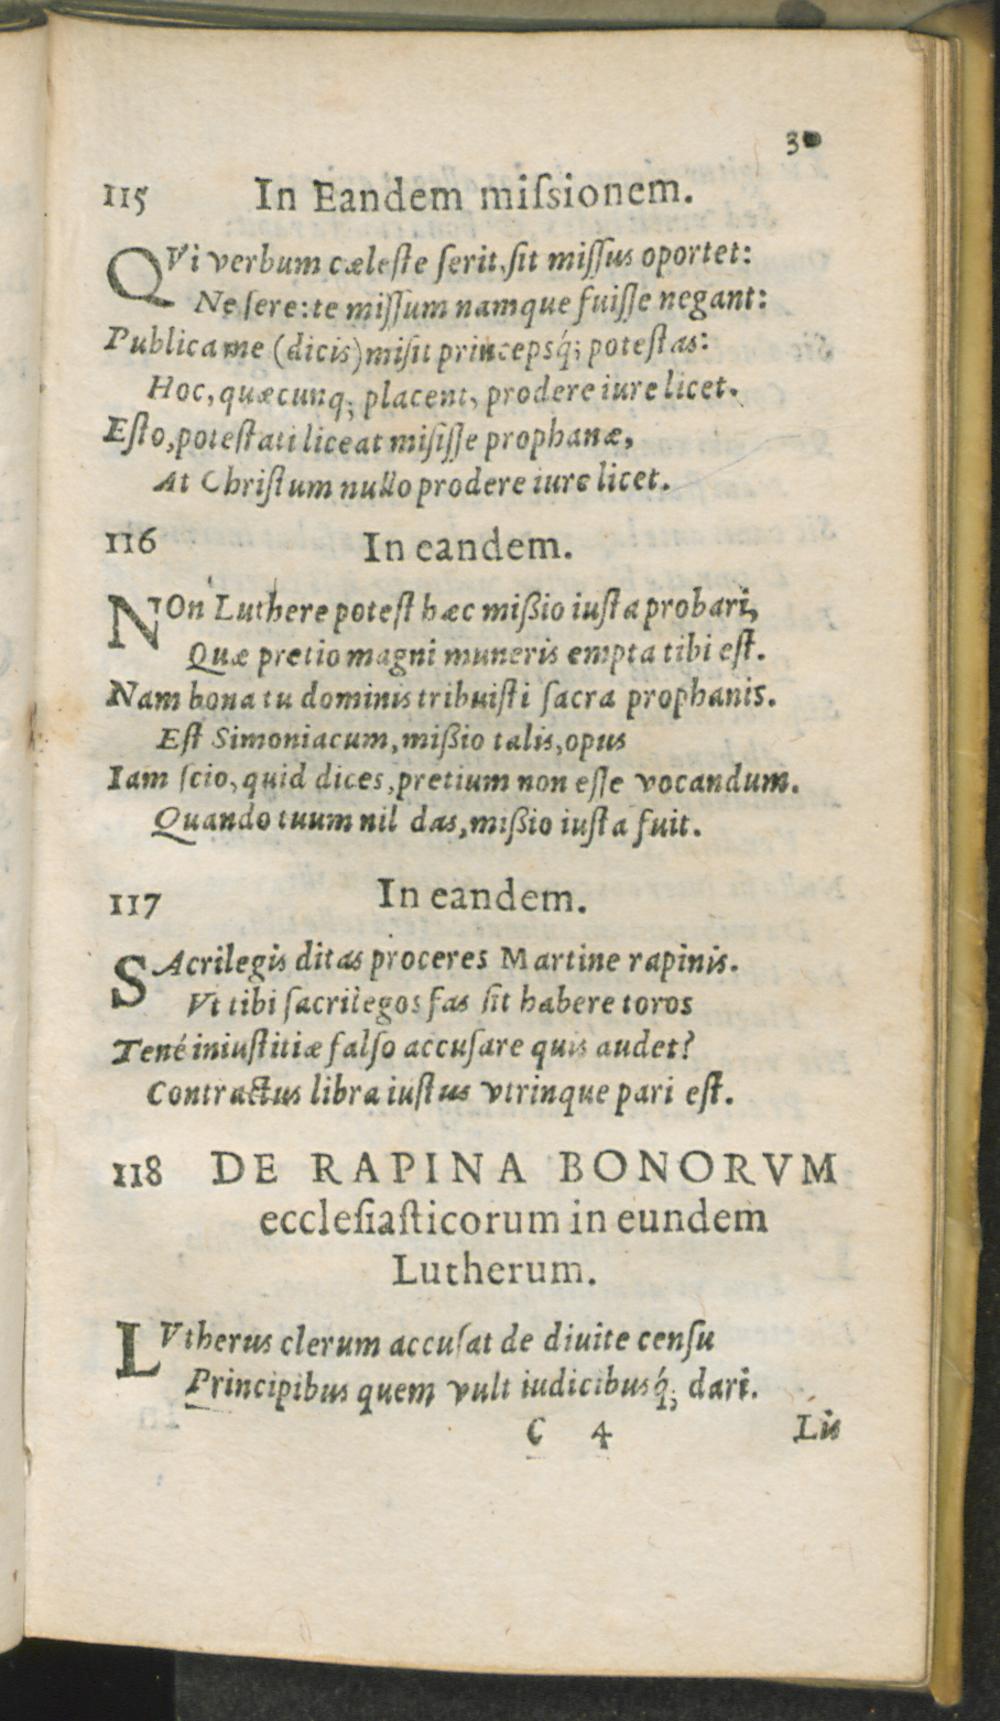 30
115 In Eandem miſsionem.
QVi verbum cæleſte ſerit, ſit miſſus oportet:
Ne ſere: te miſſum namque fuiſſe negant:
Publica me (dicis) miſit princepsq́; poteſtas:
Hoc, quæcunq; placent, prodere iure licet.
Eſto, poteſtati liceat miſiſſe prophanæ,
At Chriſtum nullo prodere iure licet.
116 In eandem.
NOn Luthere poteſt hæc mißio iuſta probari,
Quæ pretio magni muneris empta tibi eſt.
Nam bona tu dominis tribuiſti ſacra prophanis.
Eſt Simoniacum, mißio talis, opus
Iam ſcio, quid dices, pretium non eſſe vocandum.
Quando tuum nil das, mißio iuſta fuit.
117 In eandem.
SAcrilegis ditas proceres Martine rapinis.
Vt tibi ſacrilegos fas ſit habere toros
Tené iniuſtitiæ falſo accuſare quis audet?
Contractus libra iuſtus vtrinque pari eſt.
118 DE RAPINA BONORVM
eccleſiaſticorum in eundem
Lutherum.
LVtherus clerum accuſat de diuite cenſu
Principibus quem vult iudicibusq́; dari.
C 4 Lis